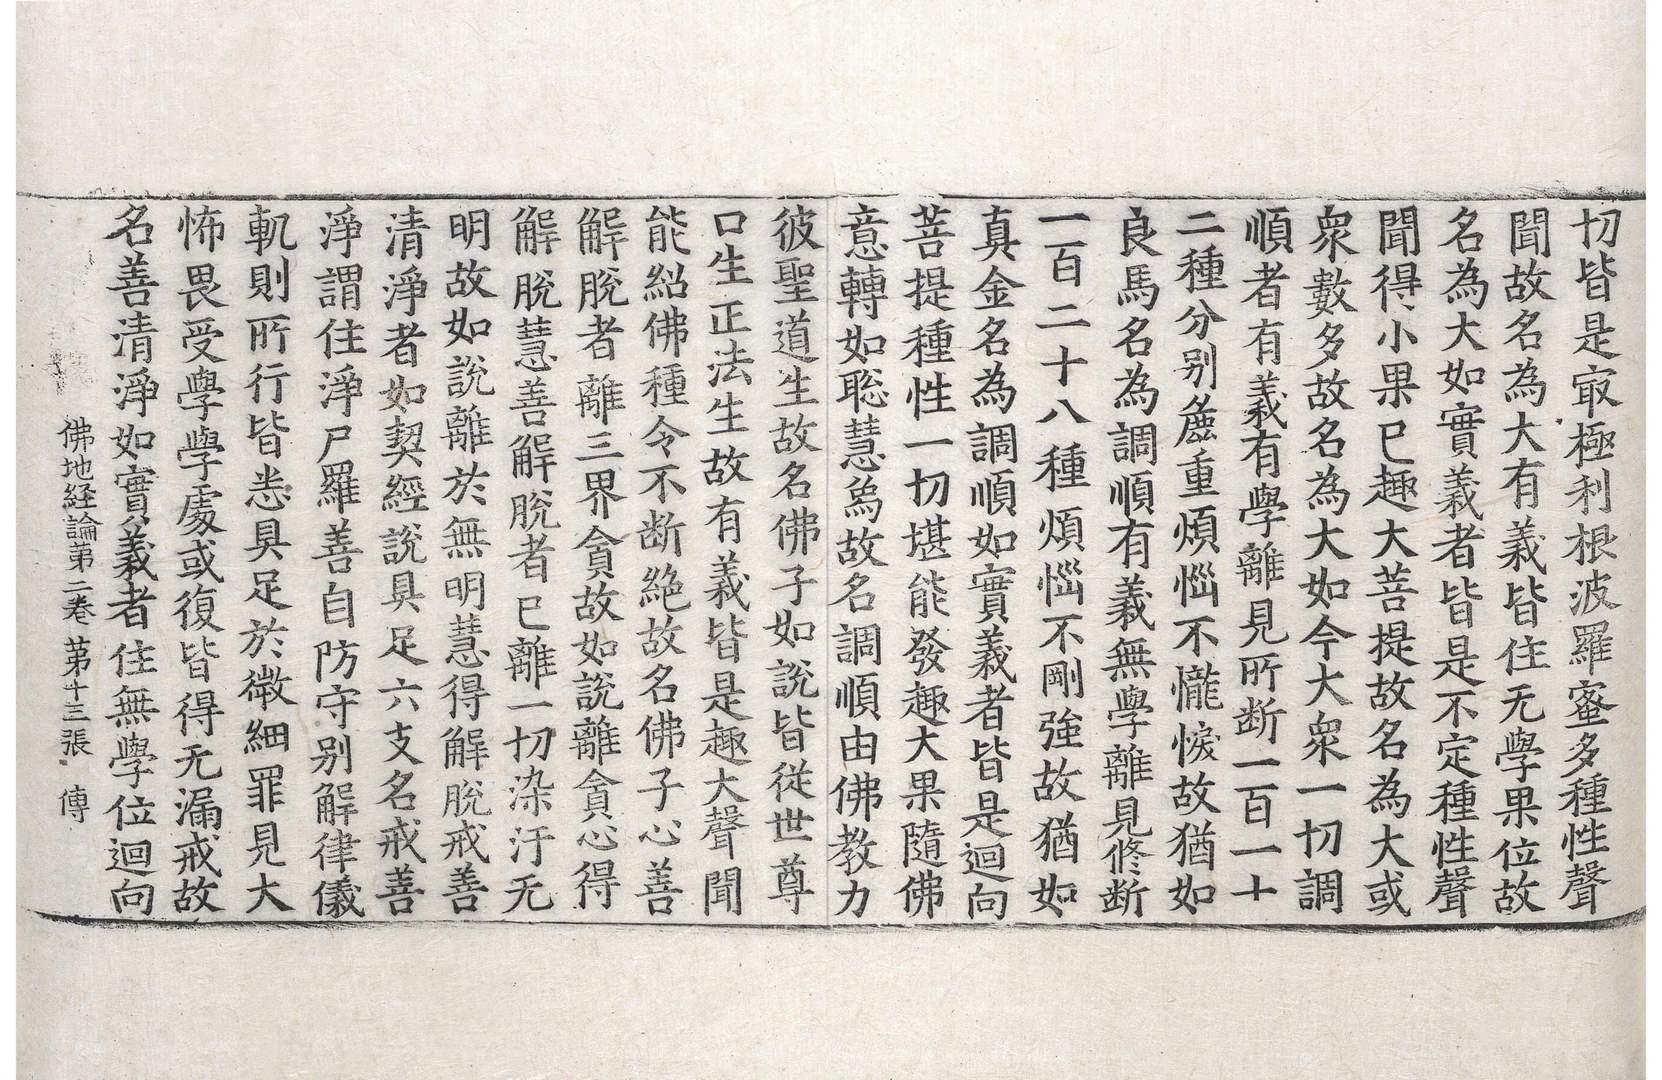 切皆是㝡極利根波羅蜜多種性聲
聞故名為大有義皆住无學果位故
名為大如實義者皆是不定種性聲
聞得小果已趣大菩提故名為大或
衆數多故名為大如今大衆一切調
順者有義有學離見所断一百一十
二種分别麁重煩惱不𢤱悷故猶如
良馬名為調順有義無學離見修断
一百二十八種煩惱不剛強故猶如
真金名為調順如實義者皆是迴向
菩提種性一切堪能發趣大果隨佛
意轉如聡慧爲故名調順由佛教力
彼聖道生故名佛子如說皆從世尊
口生正法生故有義皆是趣大聲聞
能紹佛種令不断絶故名佛子心善
解脫者離三界貪故如說離貪心得
解脫慧善解脫者已離一切染汙无
明故如說離於無明慧得解脫戒善
清淨者如契經說具足六支名戒善
淨謂住淨尸羅善自防守别解律儀
軌則所行皆悉具足於微細罪見大
怖畏受學學處或復皆得无漏戒故
名善清淨如實義者住無學位迴向
佛地経論第二卷 第十三張 傳